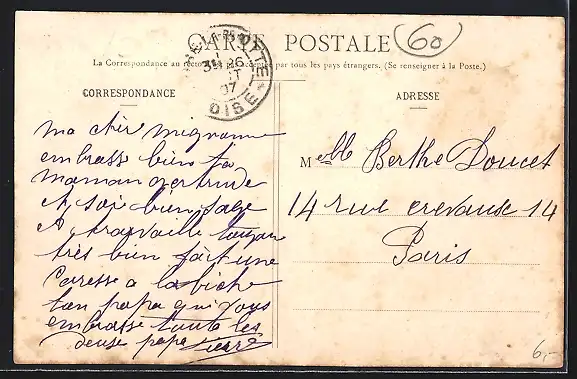 CARTE POSTALE
60
La Correspondance au recto n'est pas acceptée par tous les pays étrangers. (Se renseigner à la Poste.)
CORRESPONDANCE
ma chér mignonne
embrasse bien ta
maman gertrude
et soi bien sage
et travaille toujour
très bien fait une
Caresse a la biche
ton papa qui vous
embrasse toute les
deuse papa Pierre
ADRESSE
Melle Berthe Doucet
14 rue crevause 14
Paris
OISE
07
6,-